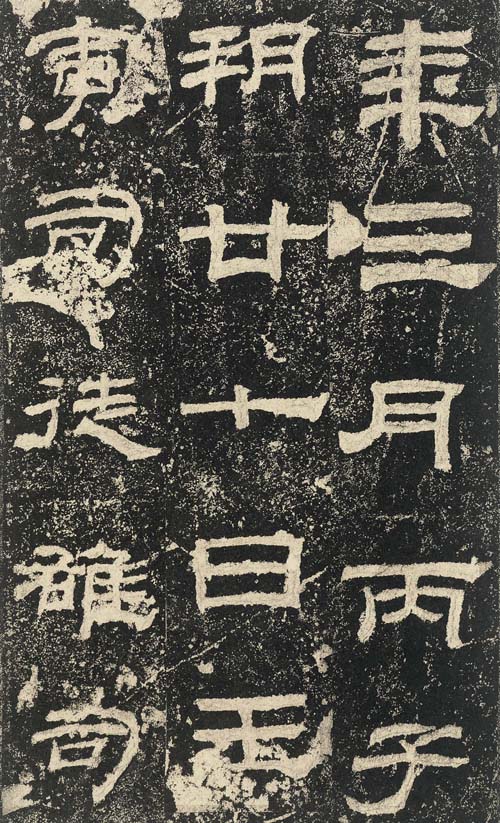 年三月丙子
朔廿七日壬
寅司徒雄司